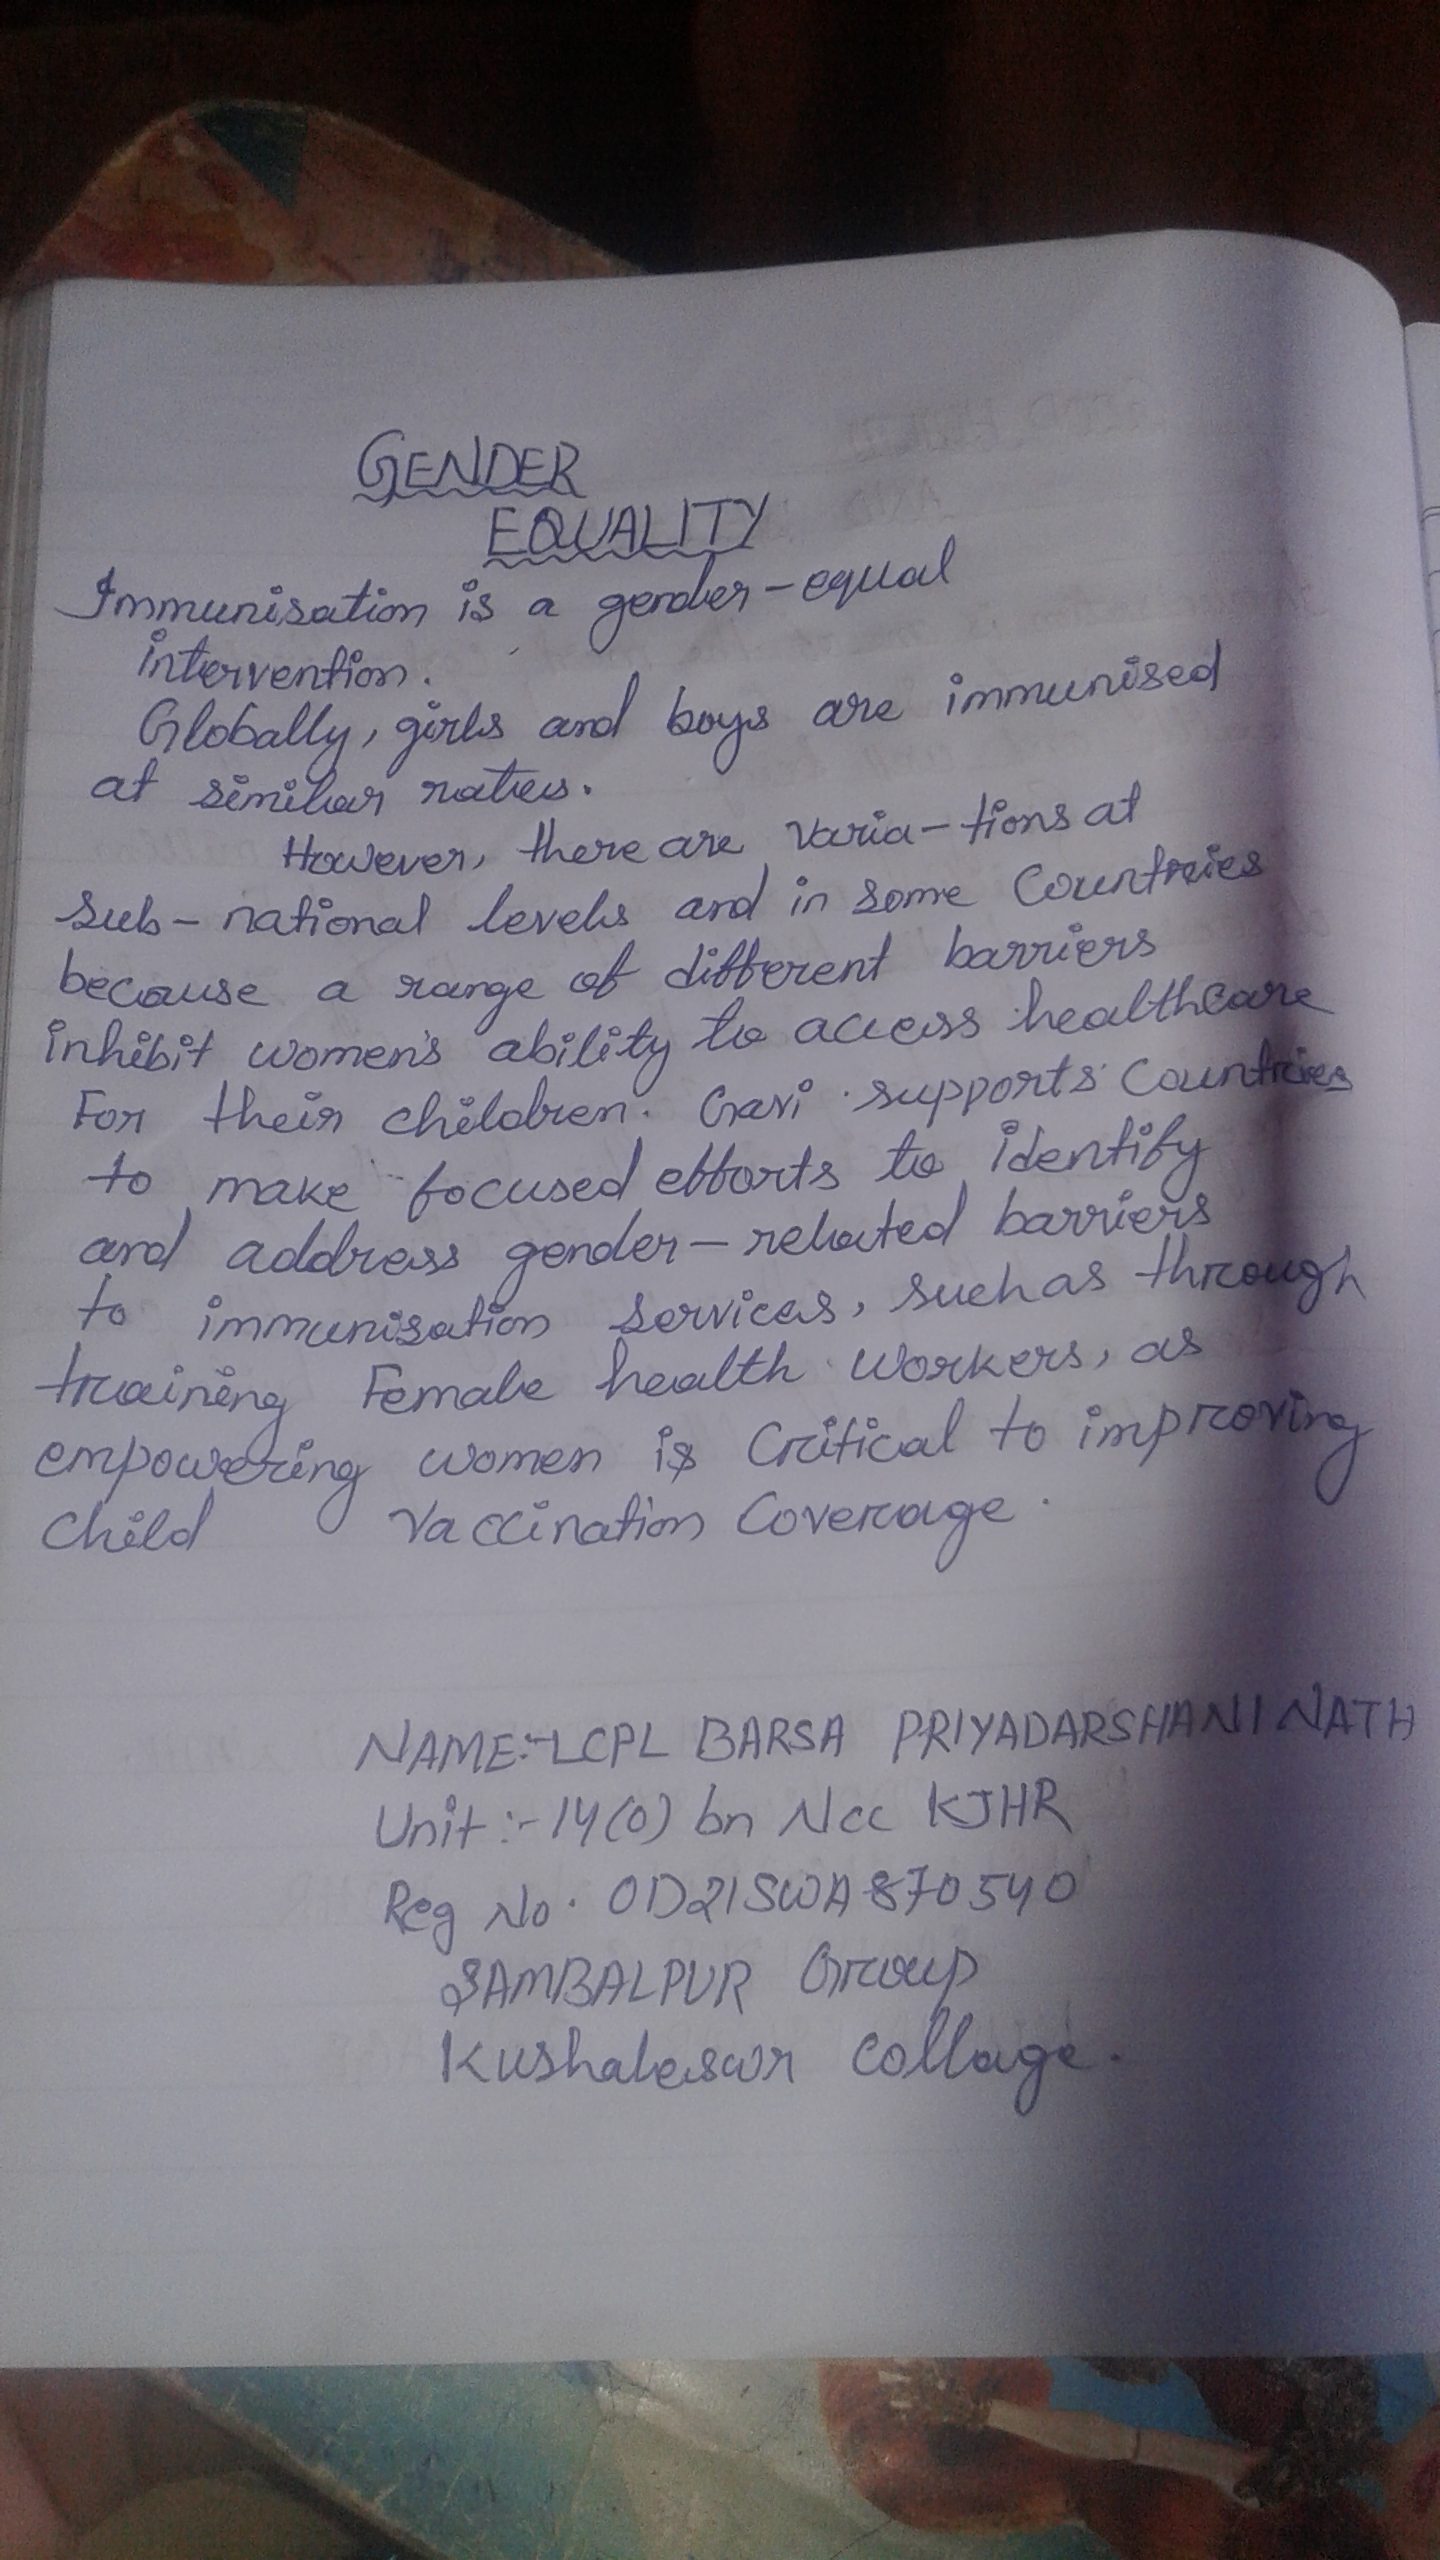 GENDER
EQUALITY
Immunisation is a gender-equal
intervention.
Globally, girls and boys are immunised
at similar rates.
However, there are varia-tions at
sub-national levels and in some Countries
because a range of different barriers
inhibit women's ability to access healthcare
For their children. Gavi supports Countries
to make focused efforts to identify
and address gender-related barriers
to immunisation services, such as through
training Female health workers, as
empowering women is Critical to improving
Child Vaccination Coverage.
NAME:-LCPL BARSA PRIYADARSHANI NATH
Unit :- 14(0) bn Ncc KJHR
Reg No. OD21SWA870540
SAMBALPUR Group
Kushaleswr Collage.